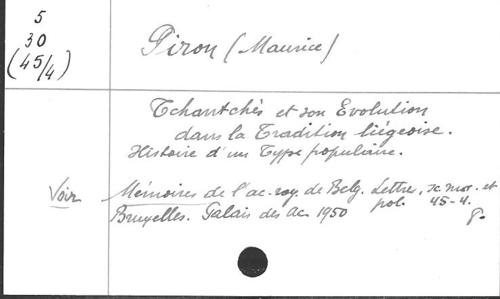 5
30
(45/4)
Piron (Maurice)
Tchantchès et son Evolution
dans la Tradition liégeoise.
Histoire d'un Type populaire.
Voir Mémoires de l'ac. roy. de Belg. Lettres, sc. mor. et
pol. 45-4.
Bruxelles. Palais des Ac. 1950 8º